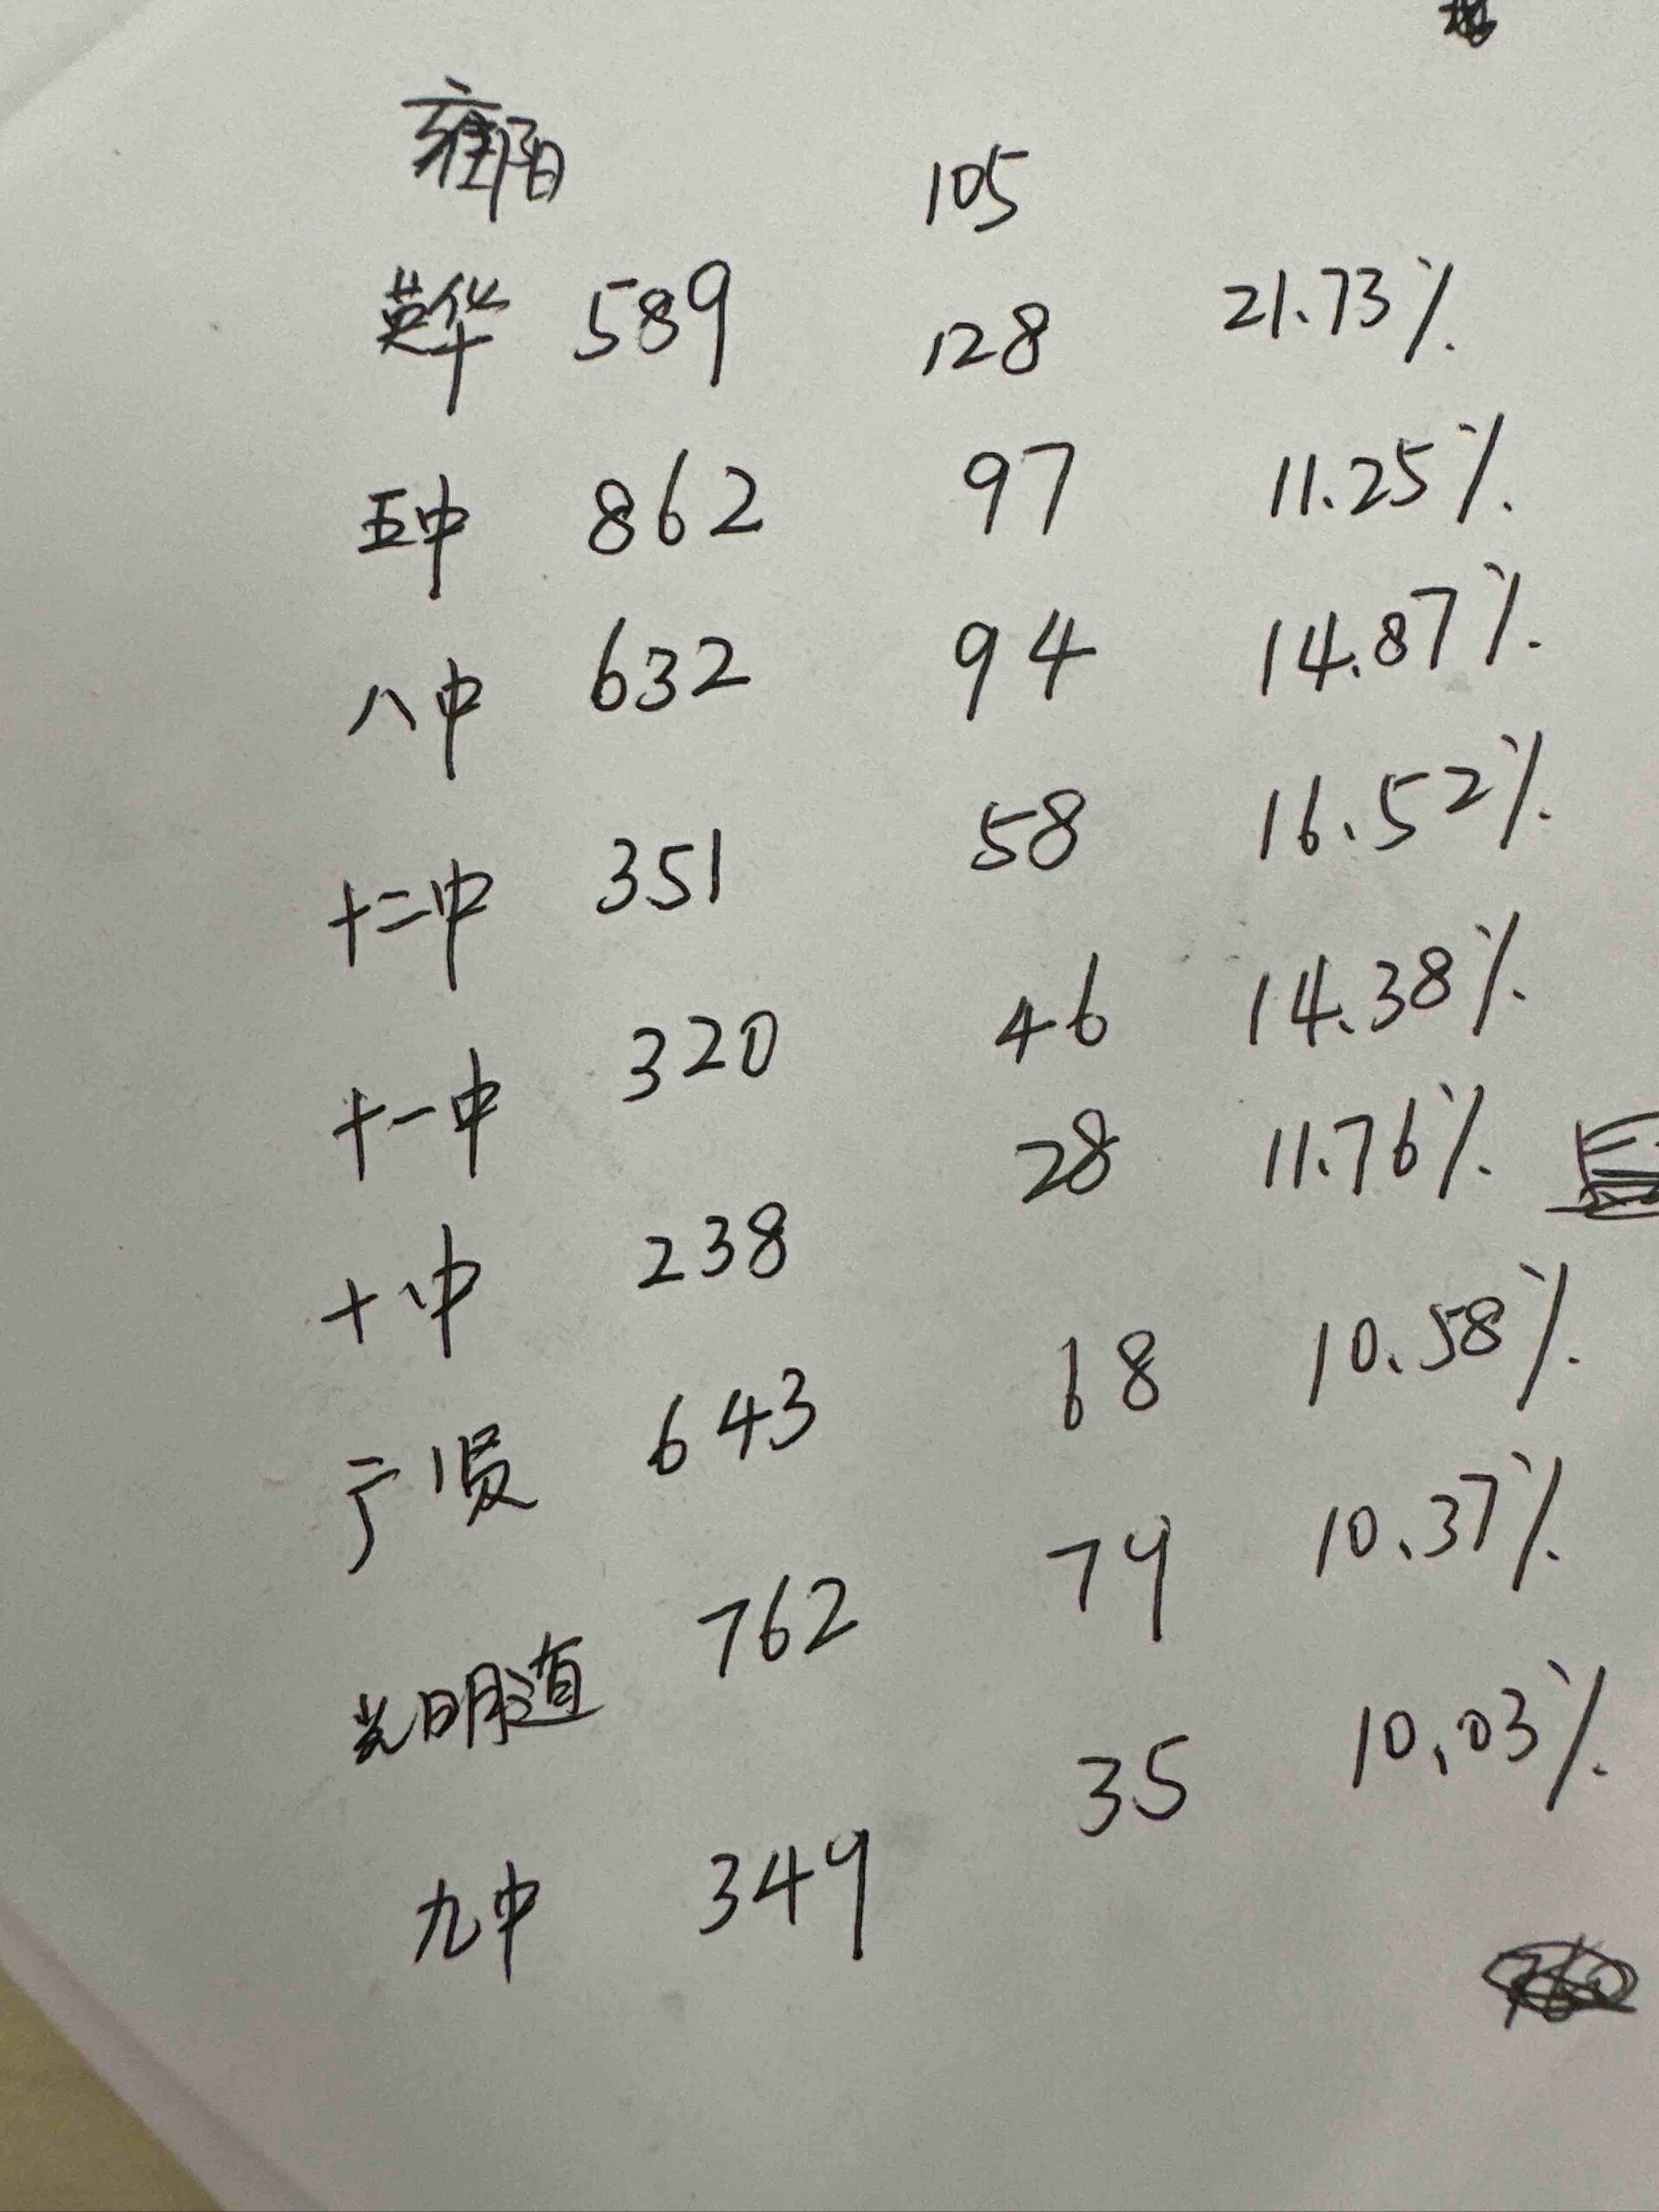 雍阳 105
英华 589 128 21.73%
五中 862 97 11.25%
八中 632 94 14.87%
十二中 351 58 16.52%
十一中 320 46 14.38%
十中 238 28 11.76%
广贤 643 68 10.58%
光明道 762 79 10.37%
九中 349 35 10.03%